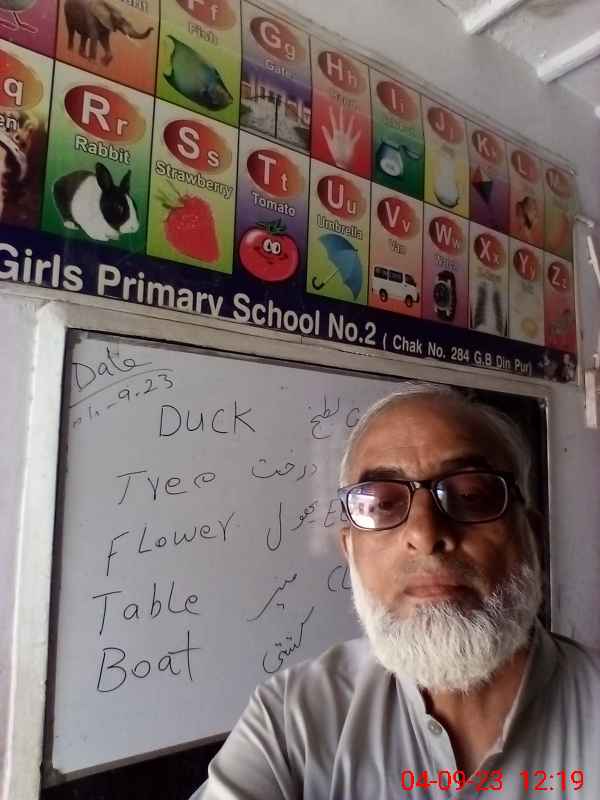 Ff
Fish
Gg
Gate
Hh
Ii
Jj
Kk
L
M
q
Rr
Rabbit
Ss
Strawberry
Tt
Tomato
Uu
Umbrella
Vv
Van
Ww
Watch
Xx
Yy
Zz
Girls Primary School No.2 ( Chak No. 284 G.B Din Pur)
Date
-9-23
DUCK بطخ
Tree درخت
FLower پھول
Table میز
Boat کشتی
04-09-23 12:19